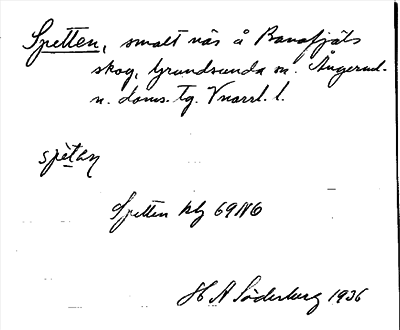 Spetten, smalt näs å Banafjäls
skog, Grundsunda sn. Ångerml.
n. doms. tg. Vnorrl. l.
spètan
Spetten kbg 69 N6
H A Söderberg 1936